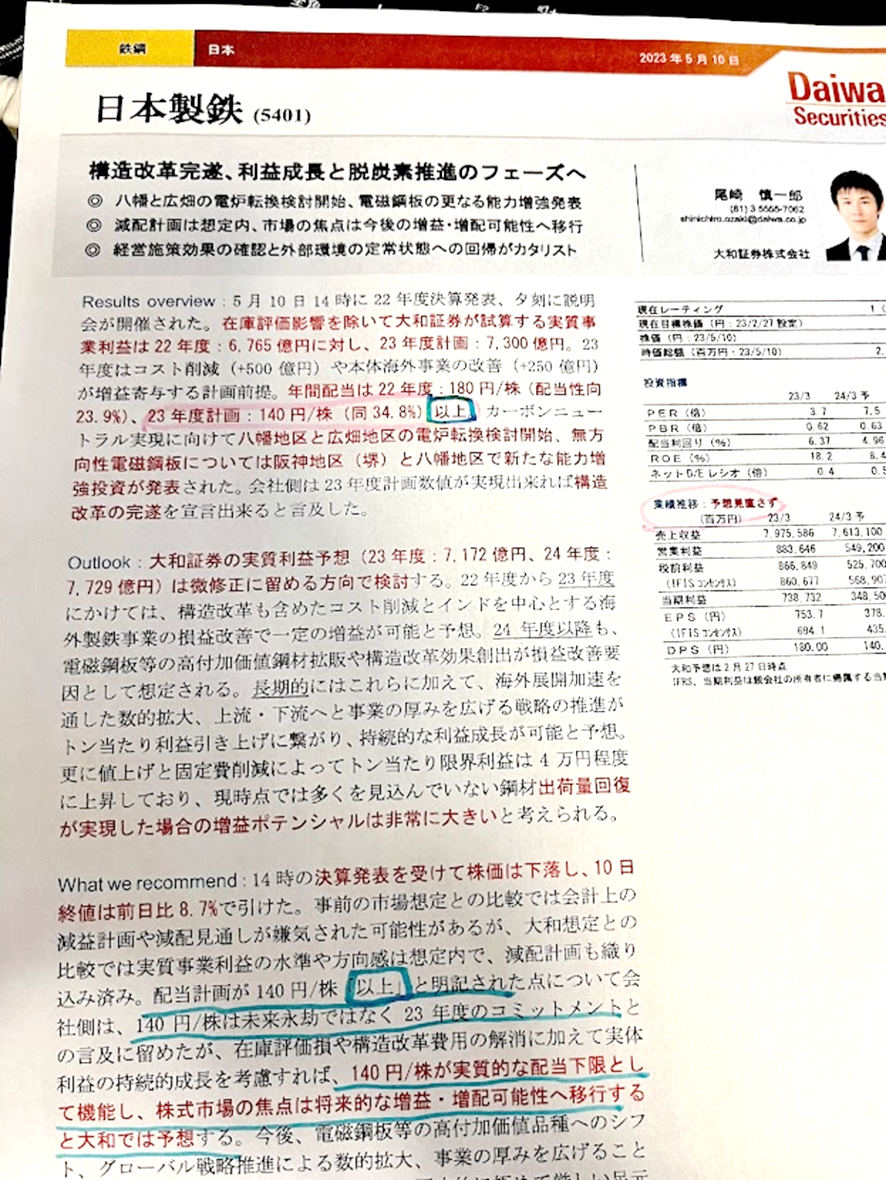 鉄鋼
日本
2023年5月10日
Daiwa
Securities
日本製鉄 (5401)
構造改革完遂、利益成長と脱炭素推進のフェーズへ
◎ 八幡と広畑の電炉転換検討開始、電磁鋼板の更なる能力増強発表
◎ 減配計画は想定内、市場の焦点は今後の増益・増配可能性へ移行
◎ 経営施策効果の確認と外部環境の定常状態への回帰がカタリスト
尾崎 慎一郎
(81) 3 5555-7062
shinichiro.ozaki@daiwa.co.jp
大和証券株式会社
Results overview：5月10日14時に22年度決算発表、夕刻に説明
会が開催された。在庫評価影響を除いて大和証券が試算する実質事
業利益は22年度：6,765億円に対し、23年度計画：7,300億円。23
年度はコスト削減（+500億円）や本体海外事業の改善（+250億円）
が増益寄与する計画前提。年間配当は22年度：180円/株（配当性向
23.9%）、23年度計画：140円/株（同34.8%）以上。カーボンニュー
トラル実現に向けて八幡地区と広畑地区の電炉転換検討開始、無方
向性電磁鋼板については阪神地区（堺）と八幡地区で新たな能力増
強投資が発表された。会社側は23年度計画数値が実現出来れば構造
改革の完遂を宣言出来ると言及した。
Outlook：大和証券の実質利益予想（23年度：7,172億円、24年度：
7,729億円）は微修正に留める方向で検討する。22年度から23年度
にかけては、構造改革も含めたコスト削減とインドを中心とする海
外製鉄事業の損益改善で一定の増益が可能と予想。24年度以降も、
電磁鋼板等の高付加価値鋼材拡販や構造改革効果創出が損益改善要
因として想定される。長期的にはこれらに加えて、海外展開加速を
通した数的拡大、上流・下流へと事業の厚みを広げる戦略の推進が
トン当たり利益引き上げに繋がり、持続的な利益成長が可能と予想。
更に値上げと固定費削減によってトン当たり限界利益は4万円程度
に上昇しており、現時点では多くを見込んでいない鋼材出荷量回復
が実現した場合の増益ポテンシャルは非常に大きいと考えられる。
What we recommend：14時の決算発表を受けて株価は下落し、10日
終値は前日比8.7%で引けた。事前の市場想定との比較では会計上の
減益計画や減配見通しが嫌気された可能性があるが、大和想定との
比較では実質事業利益の水準や方向感は想定内で、減配計画も織り
込み済み。配当計画が140円/株「以上」と明記された点について会
社側は、140円/株は未来永劫ではなく23年度のコミットメントと
の言及に留めたが、在庫評価損や構造改革費用の解消に加えて実体
利益の持続的成長を考慮すれば、140円/株が実質的な配当下限とし
て機能し、株式市場の焦点は将来的な増益・増配可能性へ移行する
と大和では予想する。今後、電磁鋼板等の高付加価値品種へのシフ
ト、グローバル戦略推進による数的拡大、事業の厚みを広げること
現在レーティング
現在目標株価（円：23/2/27設定）
株価（円：23/5/10）
時価総額（百万円・23/5/10） 2,
投資指標
23/3 24/3予
PER（倍） 3.7 7.5
PBR（倍） 0.62 0.63
配当利回り（%） 6.37 4.96
ROE（%） 18.2 8.4
ネットD/Eレシオ（倍） 0.4 0.5
業績推移：予想見直さず
（百万円） 23/3 24/3予
売上収益 7,975,586 7,613,100
営業利益 883,646 549,200
税前利益 866,849 525,700
（IFISコンセンサス） 860,677 568,907
当期利益 738,732 348,500
EPS（円） 753.7 378.
（IFISコンセンサス） 694.1 435.
DPS（円） 180.00 140.
大和予想は2月27日時点
IFRS、当期利益は親会社の所有者に帰属する当期